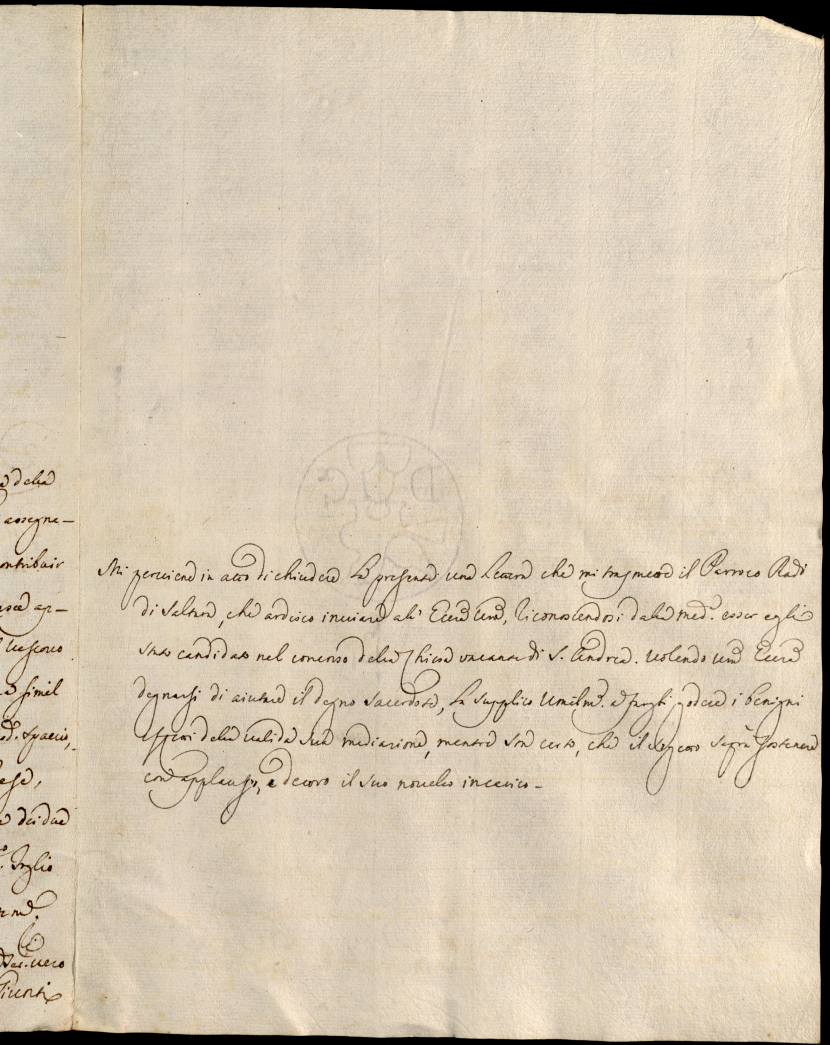 della
assegna-
contribuir
ap-
Vescovo
simil
spaccio,
dei due
foglio
vero
Mi perviene in atto di chiudere la presente una lettera che mi trasmette il Parroco Radi
di Saltara, che ardisco inviare all' Eccza Vra, riconoscendosi dalla med.ª esser egli
stato candidato nel concorso della Chiesa vacante di S. Andrea. Volendo Vra Eccza
degnarsi di aiutare il degno Sacerdote, la supplico umilmᵉ. a fargli godere i benigni
effetti della valida Sua mediazione, mentre son certo, che il saprà sostenere
con applauso, e decoro il suo novello incarico -